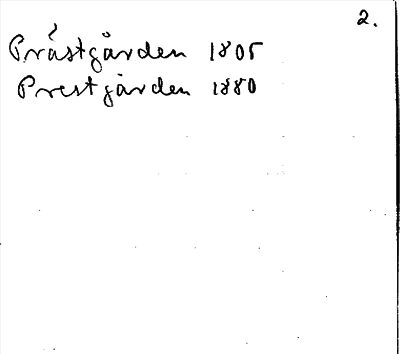 2.
Prästgården 1805
Prestgården 1880